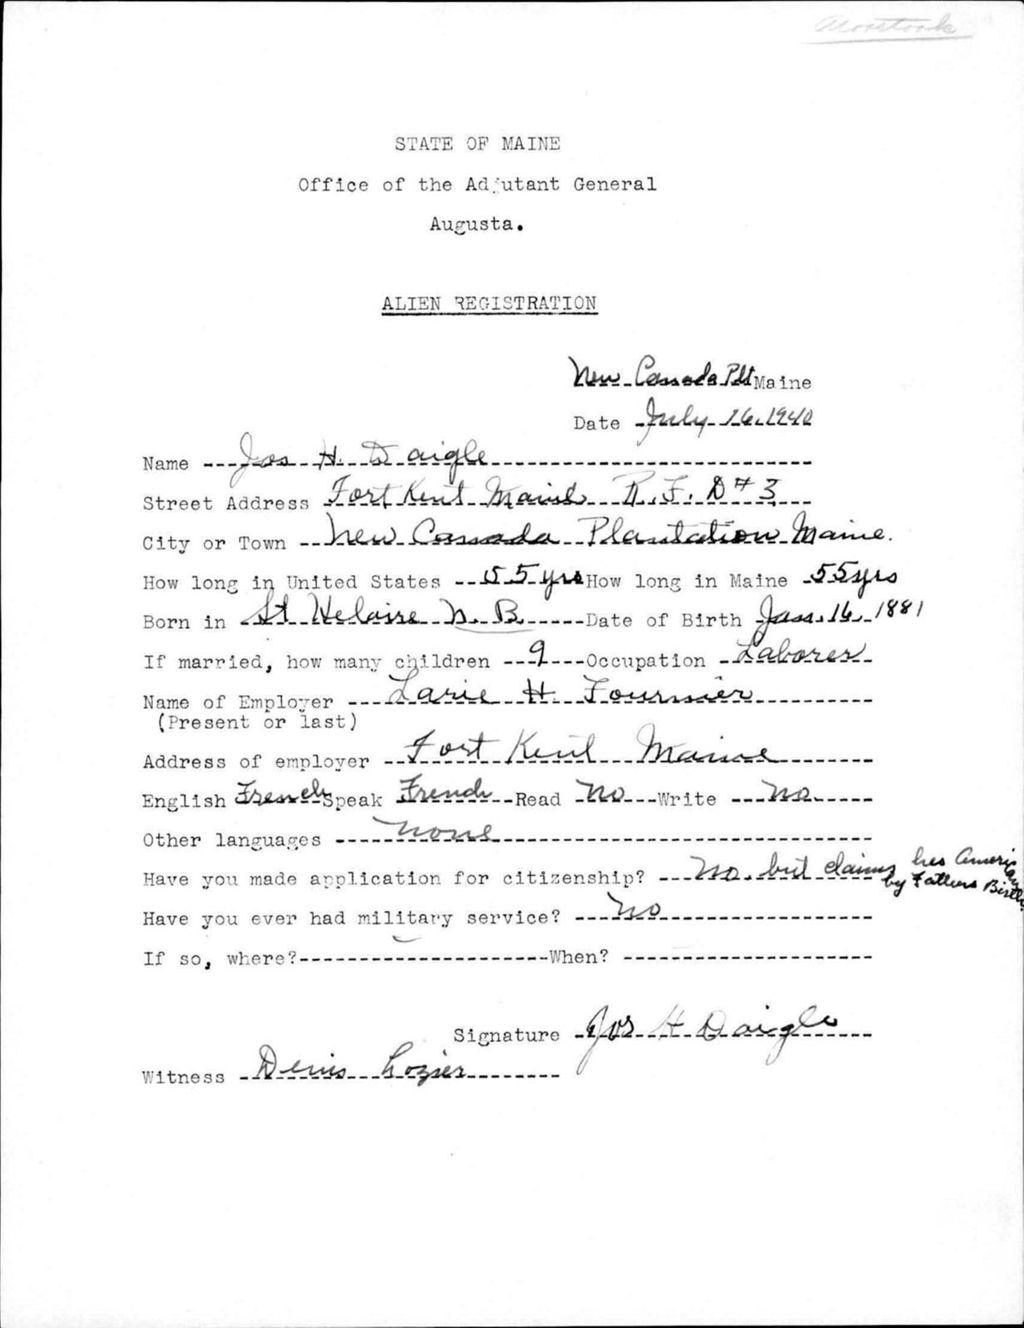 Aroostook
STATE OF MAINE
Office of the Adjutant General
Augusta.
ALIEN REGISTRATION
New Canada Plt Maine
Date July 16, 1940
Name Jos H. Daigle
Street Address Fort Kent Maine R.F.D #3
City or Town New Canada Plantation Maine.
How long in United States 55 yrs How long in Maine 55 yrs
Born in St Helaire N.B. Date of Birth Jan. 16, 1881
If married, how many children 9 Occupation Laborer
Name of Employer Larie H. Fournier
(Present or last)
Address of employer Fort Kent Maine
English French Speak French Read No Write No
Other languages none
Have you made application for citizenship? No. but claims hes American
by Fathers Birth
Have you ever had military service? No
If so, where? When?
Signature Jos H Daigle
Witness Denis Lozier